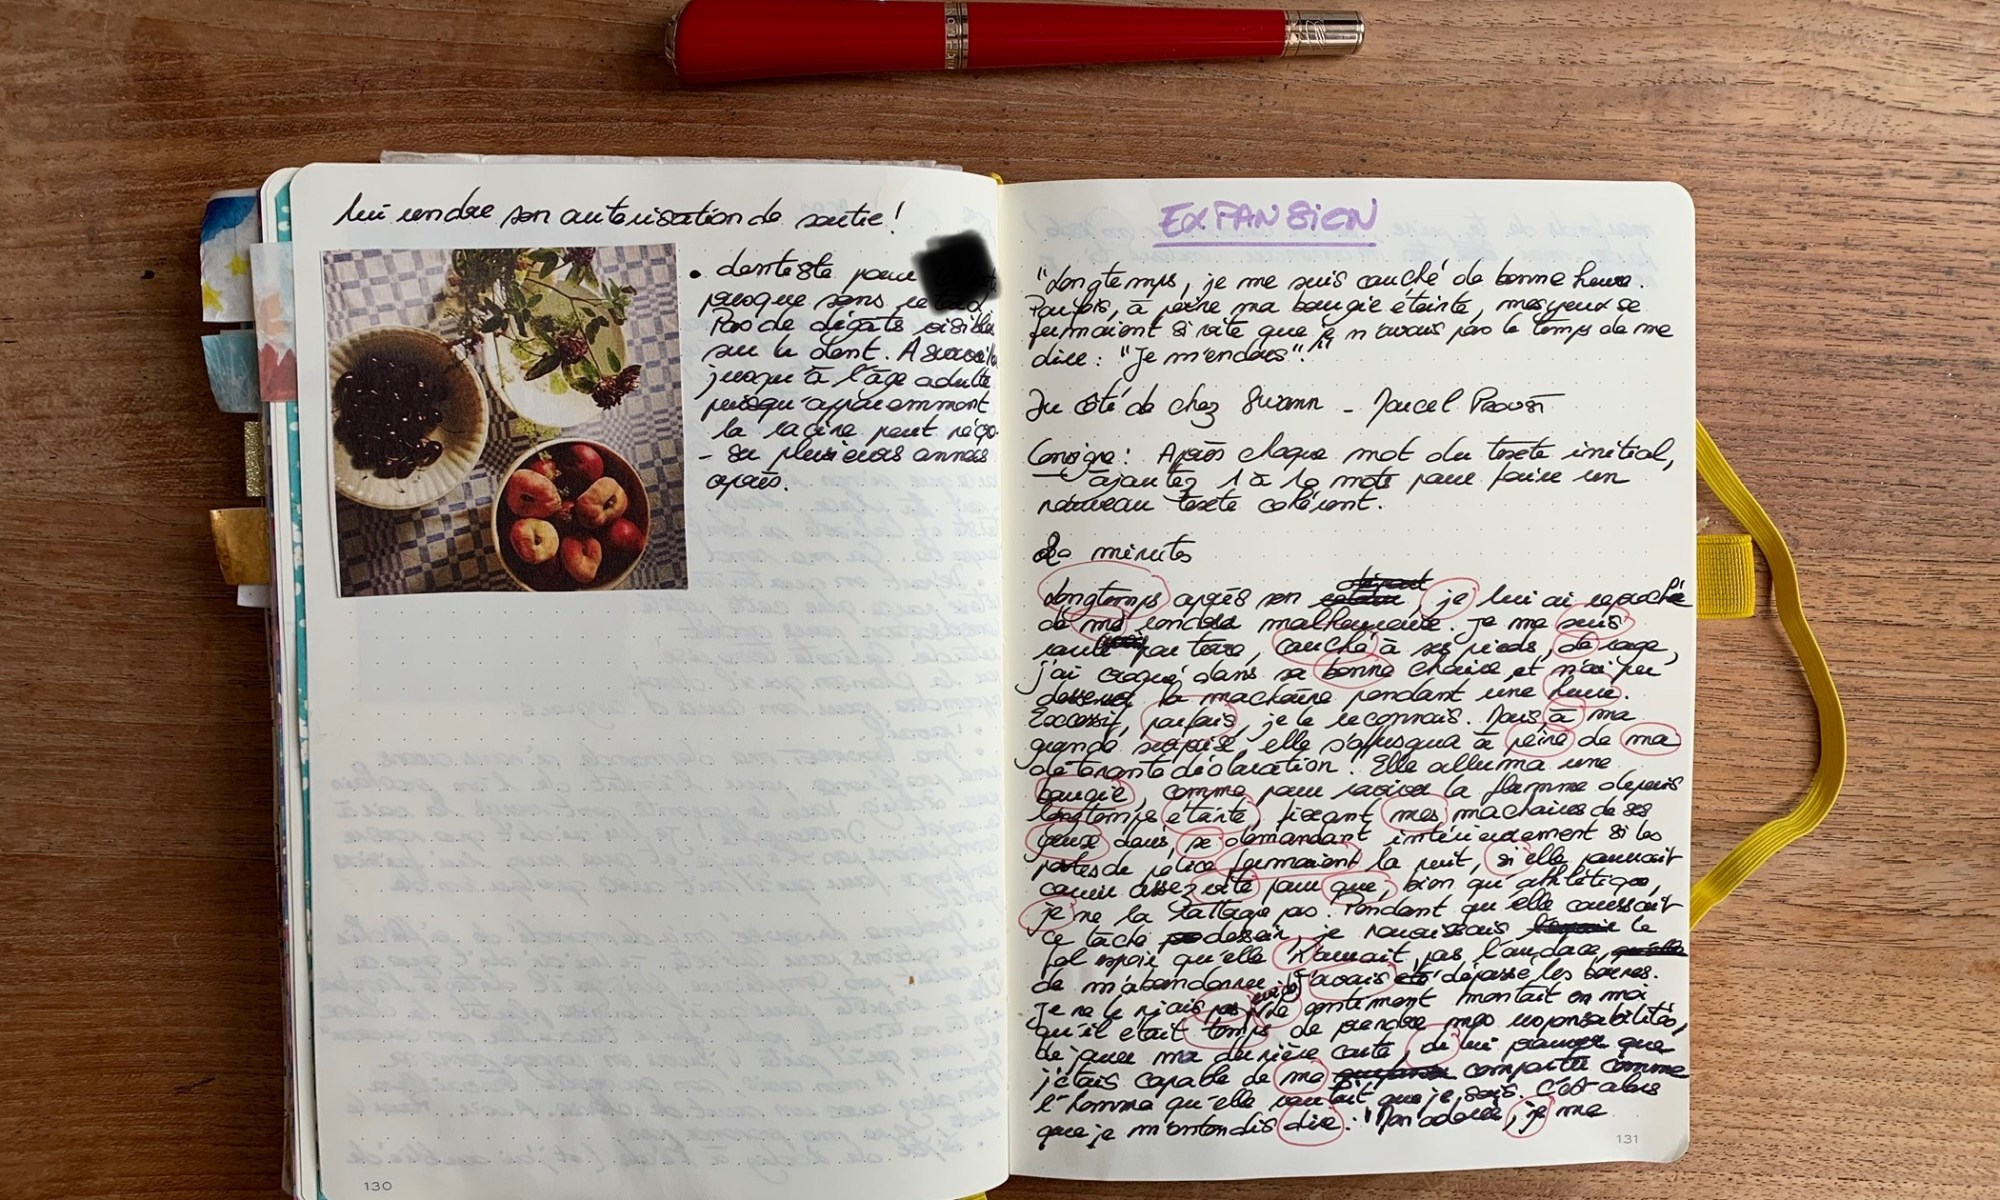 lui rendre son autorisation de sortie !
• dentiste pour
presque sans
Pas de dégâts visibles
sur la dent. A
jusqu'à l'âge adulte
puisqu'apparemment
la racine peut
plusieurs années
après.
130
EXPANSION
"Longtemps, je me suis couché de bonne heure.
Parfois, à peine ma bougie éteinte, mes yeux se
fermaient si vite que je n'avais pas le temps de me
dire : "Je m'endors"."
Du côté de chez Swann - Marcel Proust
Consigne : Après chaque mot du texte initial,
ajoutez 1 à 10 mots pour faire un
nouveau texte cohérent.
20 minutes
Longtemps après son départ, je lui ai reproché
de me rendre malheureux. Je me suis
par terre, couché à ses pieds, de rage,
j'ai croqué dans sa bonne chaire et n'ai pu
desserrer la machoire pendant une heure.
Excessif, parfois, je le reconnais. Mais à ma
grande surprise, elle s'offusqua à peine de ma
déclaration. Elle alluma une
bougie, comme pour raviver la flamme depuis
longtemps éteinte, fixant mes machoires de ses
yeux clairs, se demandant intérieurement si les
postes de police fermaient la nuit, si elle pourrait
courir assez vite pour que, bien qu'athlétique,
je ne la rattrape pas. Pendant qu'elle caressait
ce dessein, je nourissais le
fol espoir qu'elle n'aurait pas l'audace
de m'abandonner. J'avais dépassé les bornes.
Je ne le niais pas, le sentiment montait en moi
qu'il était temps de prendre mes responsabilités,
de jouer ma dernière carte, de lui prouver que
j'étais capable de me comporter comme
l'homme qu'elle voulait que je sois. C'est alors
que je m'entendis dire : "Mon adorée, je me
131